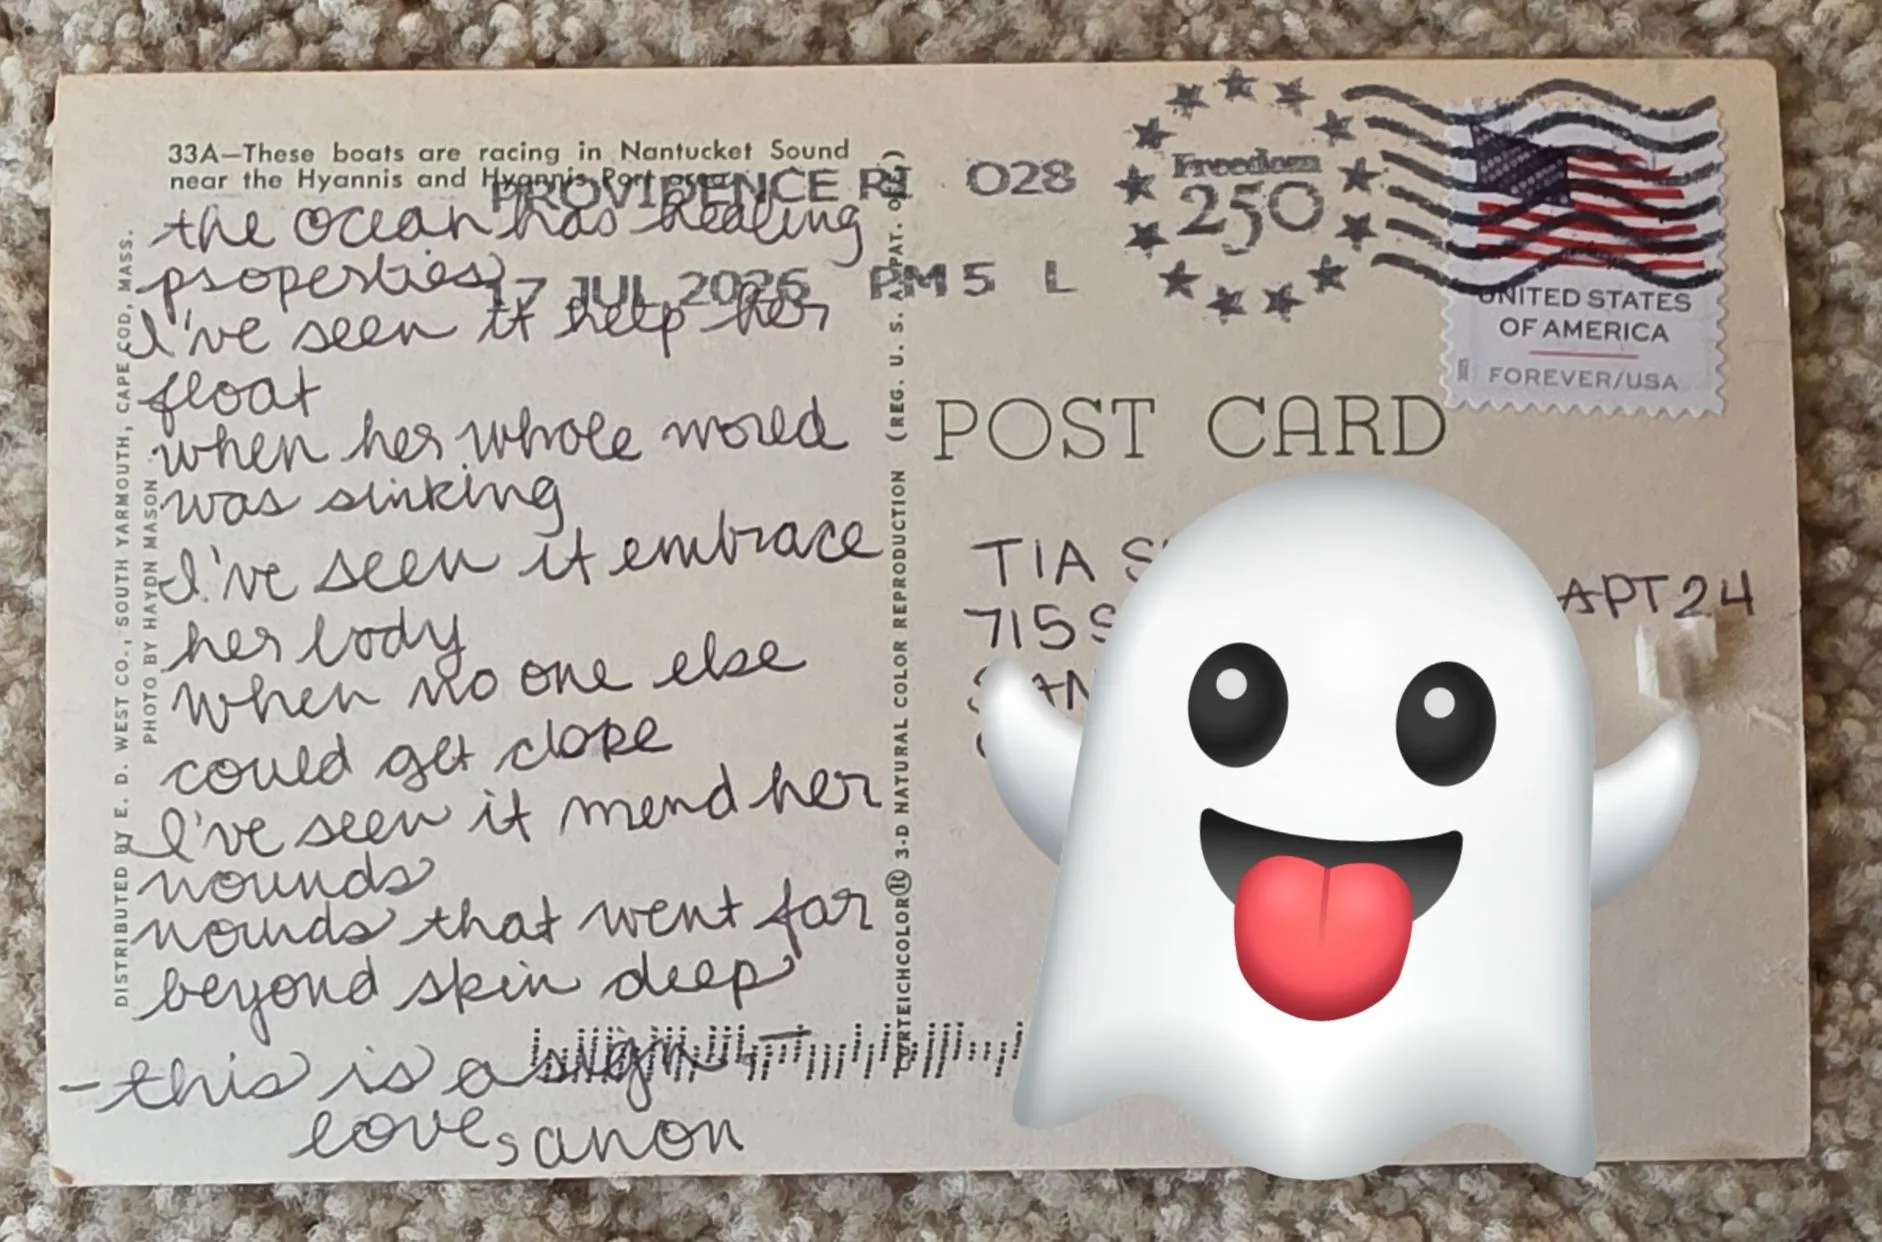 33A—These boats are racing in Nantucket Sound
near the Hyannis and Hyannis Port area.
the ocean has healing
properties
I've seen it help her
float
when her whole world
was sinking
I've seen it embrace
her body
when no one else
could get close
I've seen it mend her
wounds
wounds that went far
beyond skin deep
- this is a sign.
love, anon
DISTRIBUTED BY E. D. WEST CO., SOUTH YARMOUTH, CAPE COD, MASS.
PHOTO BY HAYDN MASON
CURTEICHCOLOR® 3-D NATURAL COLOR REPRODUCTION (REG. U. S. A. PAT. OFF.)
PROVIDENCE RI 028
17 JUL 2026 PM 5 L
Freedom
250
UNITED STATES
OF AMERICA
FOREVER/USA
POST CARD
TIA
715 APT 24